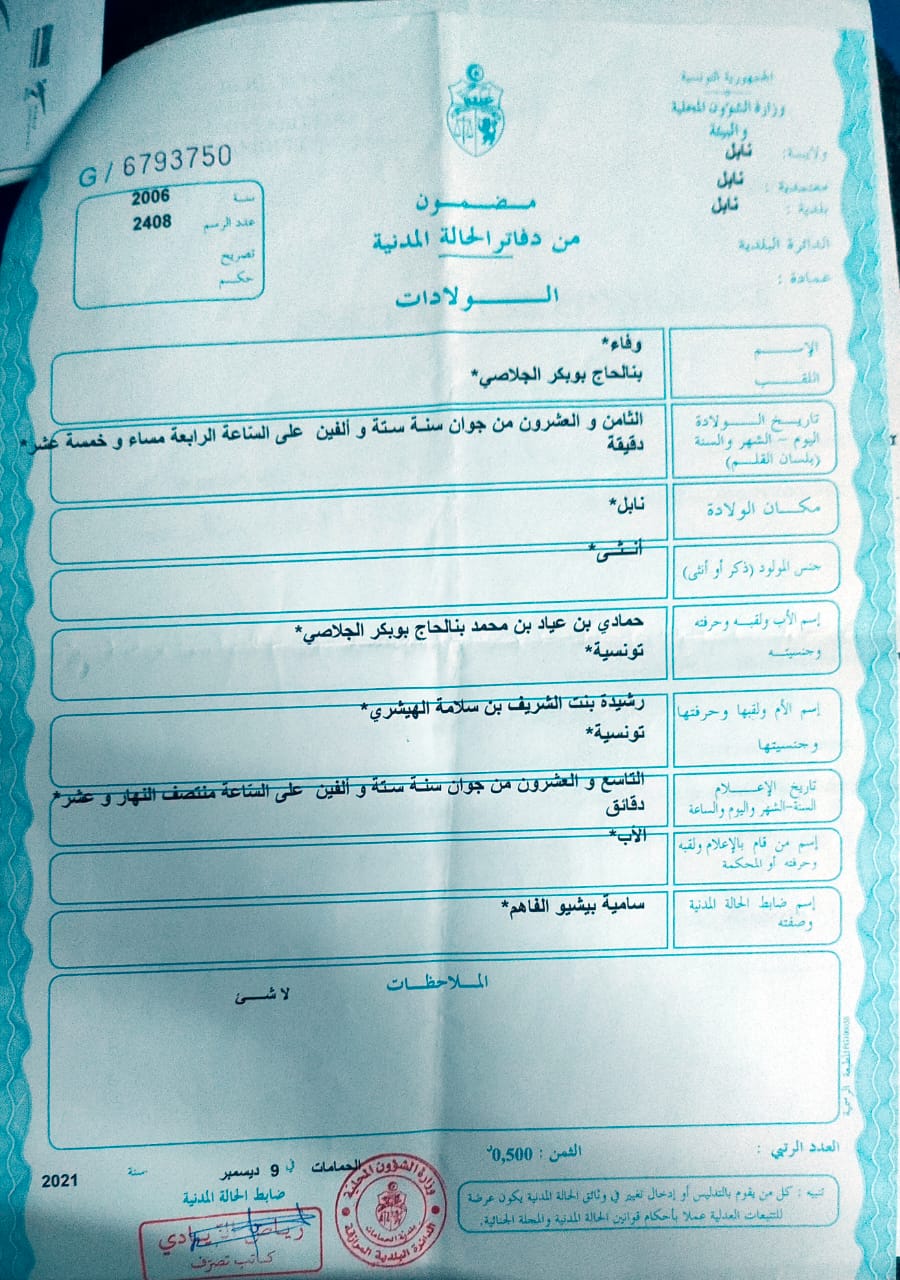 الجمهورية التونسية
وزارة الشؤون المحلية
والبيئة
ولايـــة: نابل
معتمدية : نابل
بلدية : نابل
الدائرة البلدية
عمادة :
G / 6793750
سنة 2006
عدد الرسم 2408
تصريح
حكم
مضمون
من دفاتر الحالة المدنية
الولادات
الإسم وفاء*
اللقب بنالحاج بوبكر الجلاصي*
تاريخ الولادة
اليوم - الشهر والسنة
(بلسان القلم)
الثامن و العشرون من جوان سنة ستة و ألفين على الساعة الرابعة مساء و خمسة عشر*
دقيقة
مكان الولادة نابل*
جنس المولود (ذكر أو أنثى) أنثى*
إسم الأب ولقبه وحرفته
وجنسيته
حمادي بن عياد بن محمد بنالحاج بوبكر الجلاصي*
تونسية*
إسم الأم ولقبها وحرفتها
وجنسيتها
رشيدة بنت الشريف بن سلامة الهيشري*
تونسية*
تاريخ الإعلام
السنة-الشهر واليوم والساعة
التاسع و العشرون من جوان سنة ستة و ألفين على الساعة منتصف النهار و عشر*
دقائق
إسم من قام بالإعلام ولقبه
وحرفته أو المحكمة
الأب*
إسم ضابط الحالة المدنية
وصفته
سامية بيشيو الفاهم*
الملاحظات
لا شئ
المطبعة الرسمية
العدد الرتبي :
الثمن : 0,500د
تنبيه : كل من يقوم بالتدليس أو إدخال تغيير في وثائق الحالة المدنية يكون عرضة
للتتبعات العدلية عملا بأحكام قوانين الحالة المدنية والمجلة الجنائية.
الحمامات في 9 ديسمبر سنة 2021
ضابط الحالة المدنية
رياض
كاتب تصرف
وزارة الشؤون المحلية
بلدية الحمامات
الدائرة البلدية